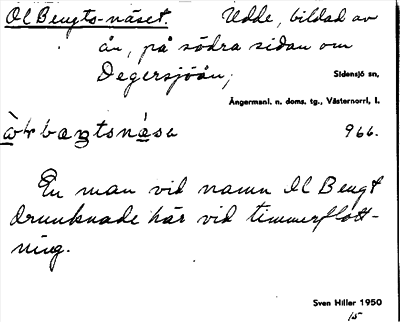 Ol Bengts-näset. Udde, bildad av
ån, på södra sidan om
Degersjöån,
Sidensjö sn,
Ångermanl. n. doms. tg., Västernorrl. l.
966.
En man vid namn Ol Bengt
drunknade här vid timmerflott-
ning.
Sven Hiller 1950
15